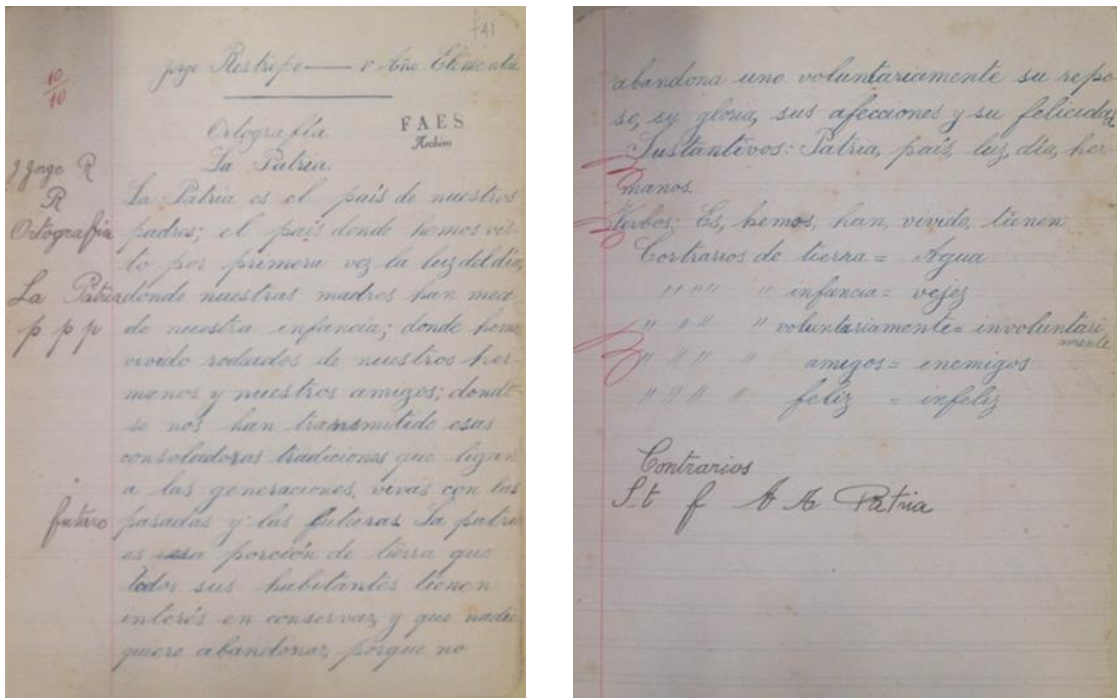 f 41
10
10
Jorge Restrepo — 1º Año Elemental
Ortografía.
FAES
Archivo
La Patria.
J Jorge R
R
Ortografía
La Patria
p p p
futuro
La Patria es el país de nuestros
padres; el país donde hemos vis-
to por primera vez la luz del día,
donde nuestras madres han meci-
do nuestra infancia; donde hemos
vivido rodeados de nuestros her-
manos y nuestros amigos; donde
se nos han transmitido esas
consoladoras tradiciones que ligan
a las generaciones, vivas con las
pasadas y las futuras La patria
es esa porción de tierra que
todos sus habitantes tienen
interés en conservar, y que nadie
quiere abandonar, porque no
abandona uno voluntariamente su repo-
so, su gloria, sus afecciones y su felicidad,
Sustantivos: Patria, país, luz, día, her-
manos.
Verbos; Es, hemos, han, vivido, tienen
Contrarios de tierra = Agua
" " " " infancia = vejez
" " " " voluntariamente = involuntari
amente
" " " " amigos = enemigos
" " " " feliz = infeliz
Contrarios
S t f A A Patria